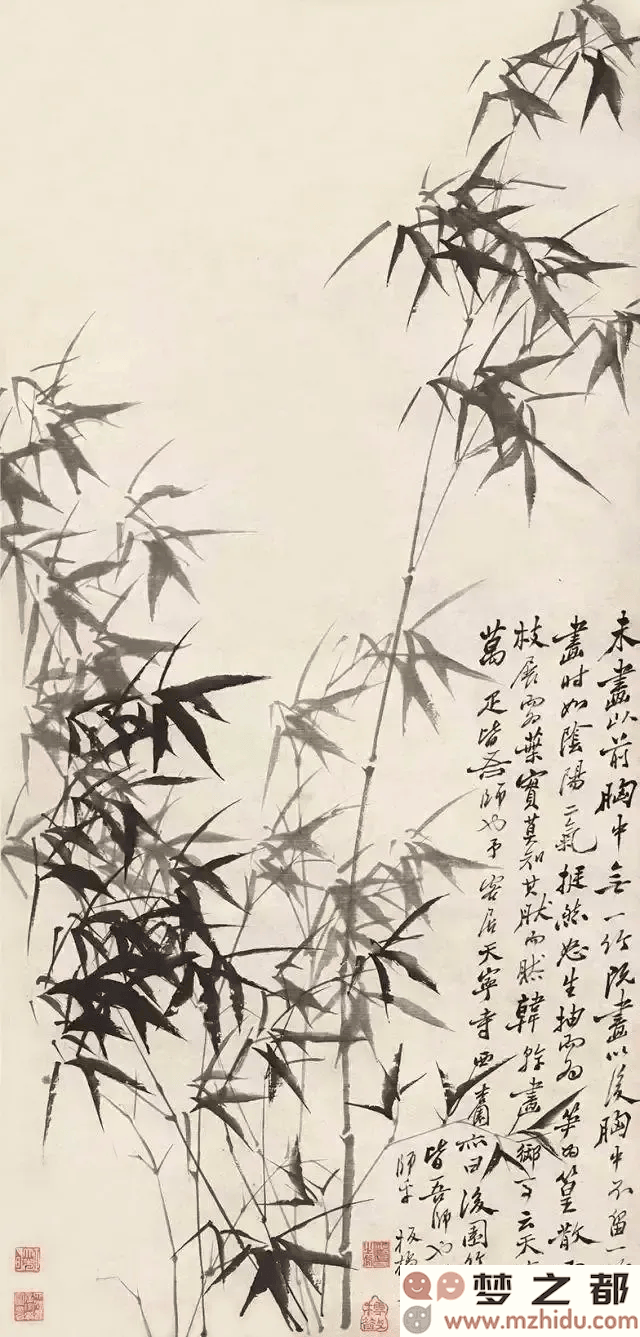 未畫以前胸中無一竹既畫以後胸中不留一
畫時如陰陽二氣挺然怒生抽而為笋為篁散而
枝展而為葉實莫知其然而然韓幹畫御馬云天
萬疋皆吾師也予客居天寧寺西杏園亦曰後園竹
皆吾師也
師乎 板橋
梦之都
www.mzhidu.com